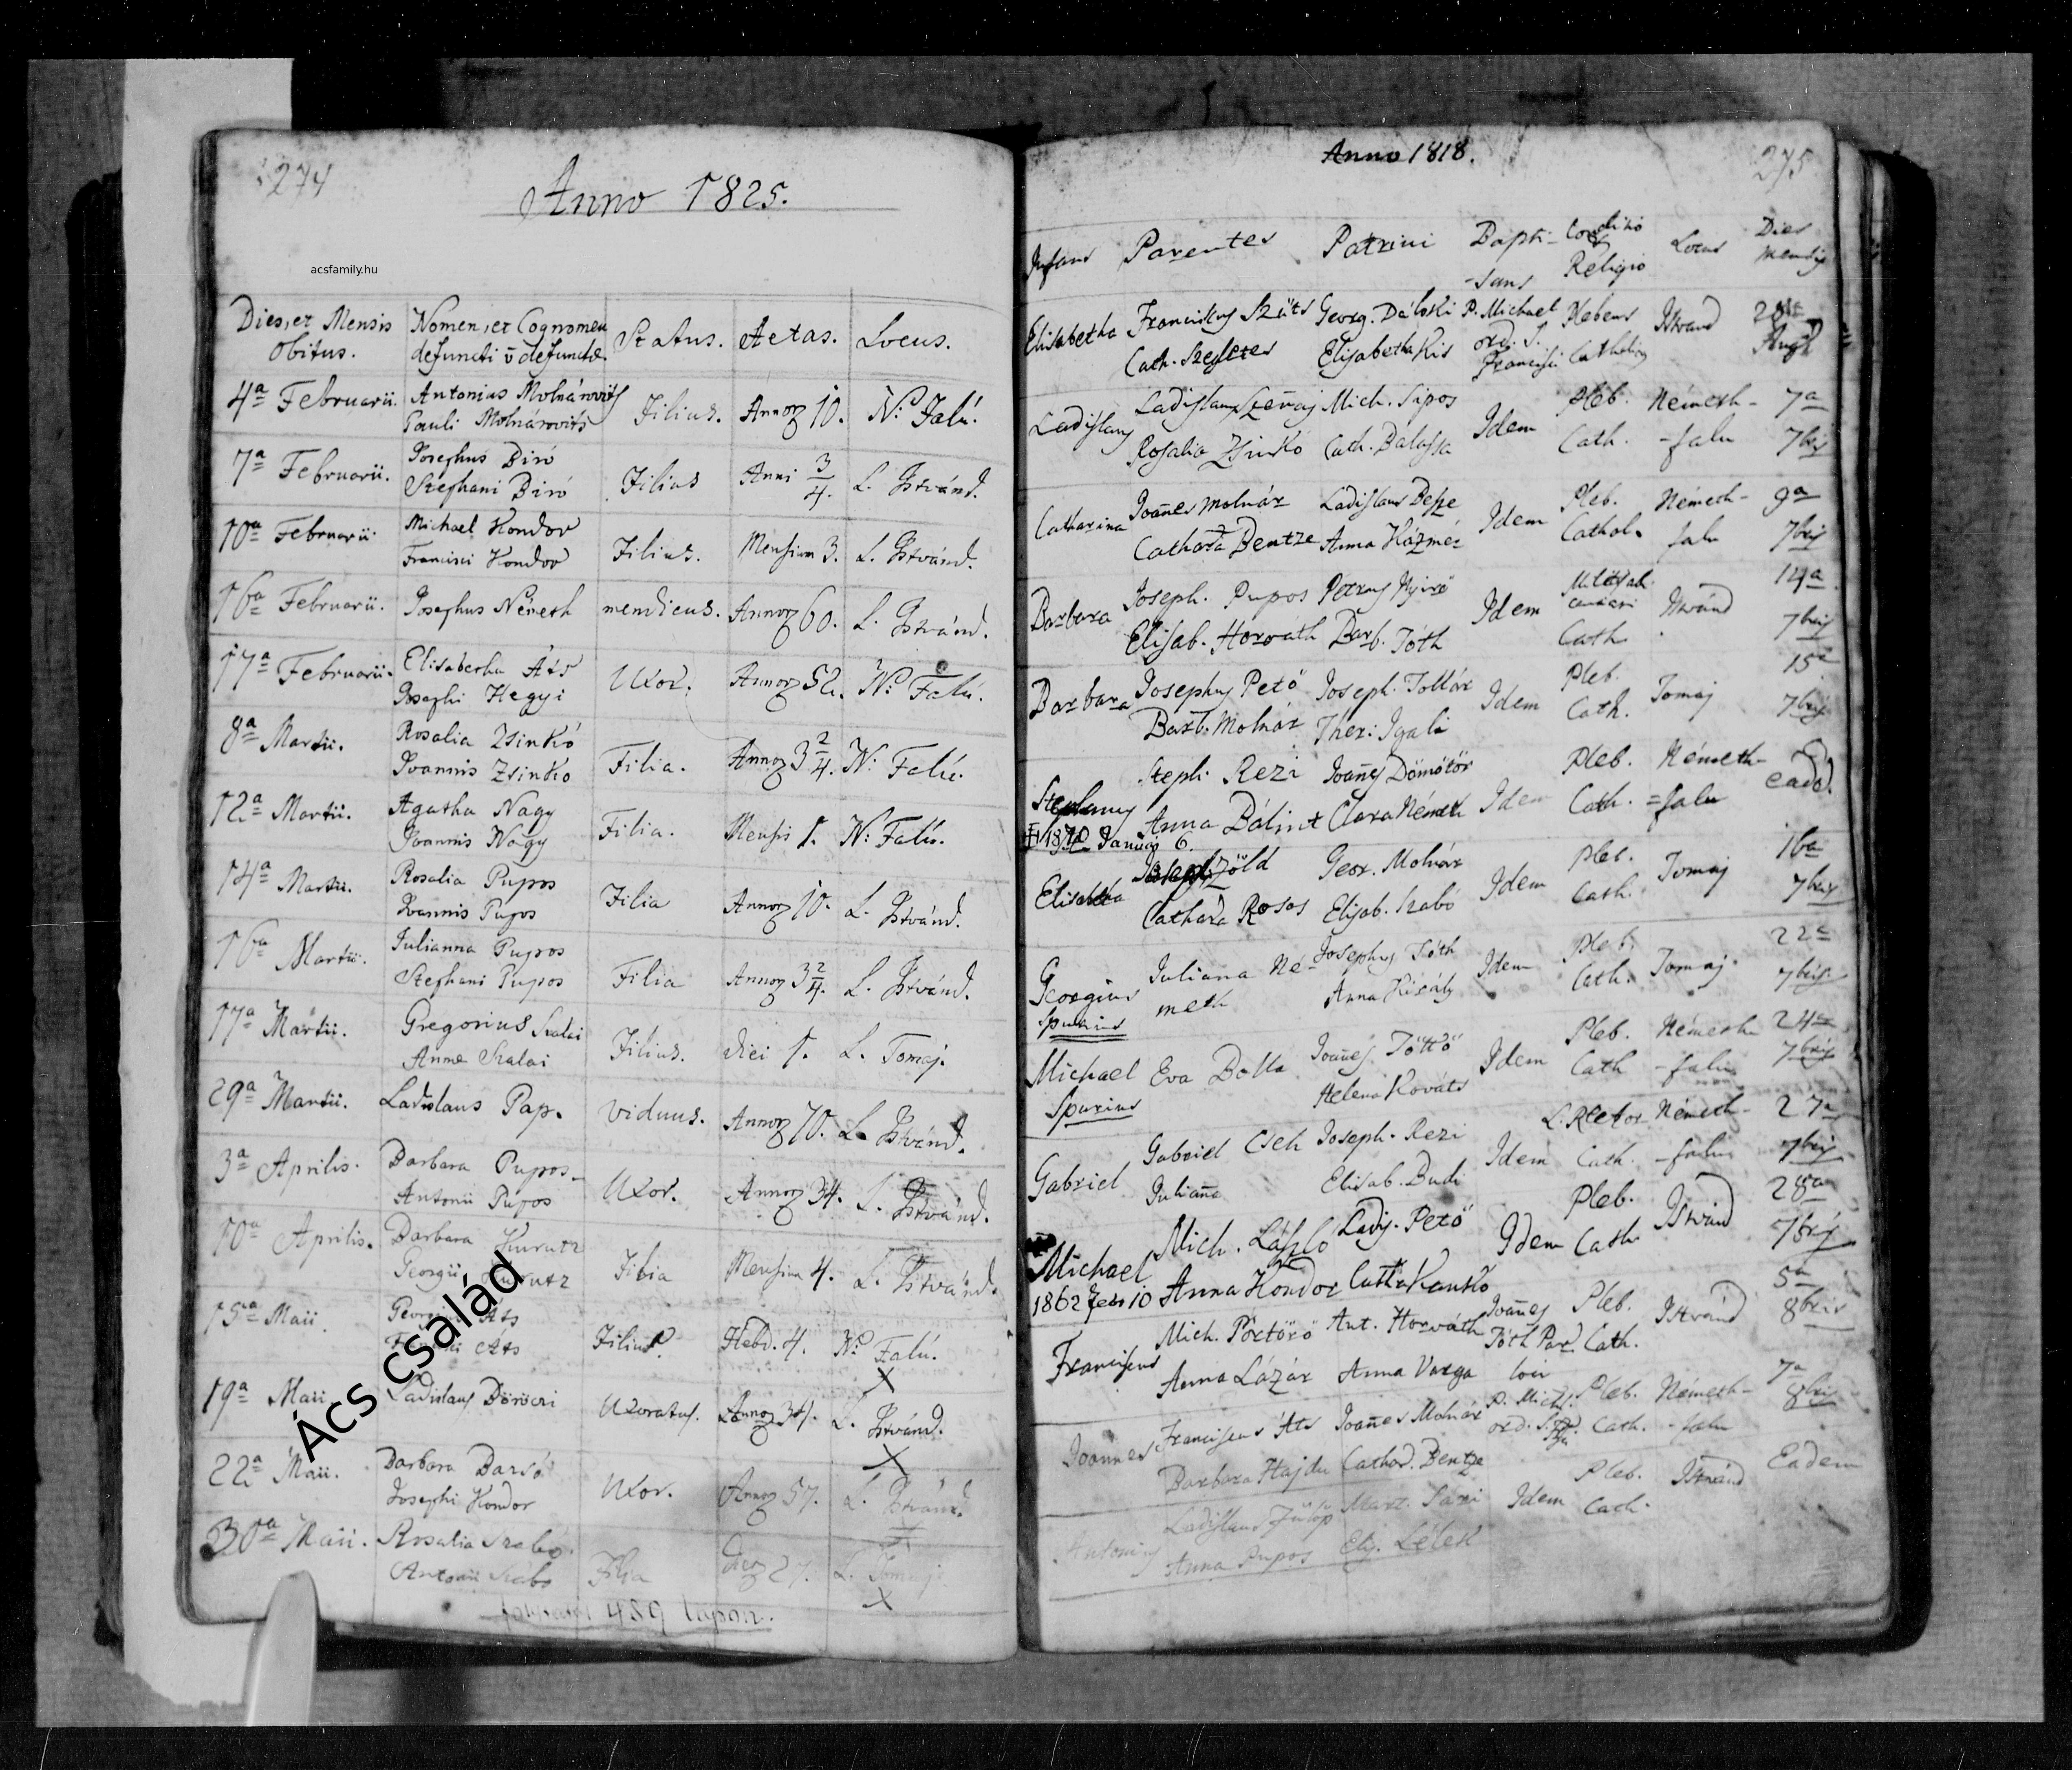 274
Anno 1825.
acsfamily.hu
Dies, et Mensis Nomen, et Cognomen Status. Aetas. Locus.
obitus. defuncti v defunctae.
4a Februarii. Antonius Molnárovits Filius. Annor 10. N. Falú.
Pauli Molnárovits
7a Februarii. Josephus Biró Filius Anni 3/4. L. Istvánd.
Stephani Biró
10a Februarii. Michael Kondor Filius. Mensium 3. L. Istvánd.
Francisci Kondor
16a Februarii. Josephus Németh mendicus. Annor 60. L. Istvánd.
17a Februarii. Elisabetha Áts Uxor. Annor 52. N. Falú.
Josephi Hegyi
8a Martii. Rosalia Zsinkó Filia. Annor 3 2/4. N: Falú.
Joannis Zsinko
12a Martii. Agatha Nagy Filia. Mensis 1. N: Falú.
Joannis Nagy
14a Martii. Rosalia Pupos Filia Annor 10. L. Istvánd.
Joannis Pupos
16a Martii. Julianna Pupos Filia Annor 3 2/4. L. Istvánd.
Stephani Pupos
17a Martii. Gregorius Szalai Filius. diei 1. L. Tomaj.
Annae Szalai
29a Martii. Ladislaus Pap. viduus. Annor 70. L. Istvánd.
3a Aprilis. Barbara Pupos Uxor. Annor 34. L. Istvánd.
Antonii Pupos
10a Aprilis. Barbara Kurutz Filia Mensium 4. L. Istvánd.
Georgii Kurutz
15a Maii. Georgius Áts Filius. Hebd. 4. N. Falú.
Áts X
19a Maii. Ladislaus Döröczi Uxoratus. Annor 34. L. Istvánd.
X
22a Maii. Barbara Barsó Uxor. Annor 57. L. Istvánd.
Josephi Kondor
30a Maii. Rosalia Szabó Filia 27. L. Tomaj.
Antonii Szabó X
489 lapon.
Ács család
Anno 1818. 275
Infans Parentes Patrini Bapti- Conditio Locus Dies
-sans Religio Mensis
Elisabetha Franciscus Szüts Georg. Dálnoki P. Michael Plebeus Istvand
Cath. Elisabetha Kis ord. S. Catholica Aug
Francisci
Ladislaus Ladislaus Mich. Sipos Idem Pleb. Németh- 7a
Rosalia Zsinkó Cath. Balassa Cath. -falu 7bris
Catharina Joannes Molnár Ladislaus Idem Pleb. Németh- 9a
Bentze Anna Kázmér Cathol. falu 7bris
Barbara Joseph. Pupos Petrus Nyirő Idem Istvánd 14a
Elisab. Horváth Barb. Tóth Cath. 7bris
Barbara Josephus Pető Joseph. Idem Pleb. Tomaj 15a
Barb. Molnár Ther: Igali Cath. 7bris
Stephanus Steph. Rezi Joannes Dömötör Idem Pleb. Németh- eadem
Anna Bálint Clara Németh Cath. =falu
Január 6.
Elisabetha Zöld Geor. Molnár Idem Pleb. Tomaj 16a
Rosos Elisab. Szabó Cath. 7bris
Georgius Juliana Né- Josephus Tóth Idem Pleb. Tomaj 22a
Spurius meth Anna Király Cath. 7bris
Michael Eva Joannes Töttő Idem Pleb. Németh 24a
Spurius Helena Kováts Cath -falu 7bris
Gabriel Gabriel Cseh Joseph. Rezi Idem L. Rector Németh- 27a
Julianna Elisab. Budi Cath. -falu 7bris
Michael Mich. László Ladis. Pető Idem Pleb. Istvánd 28a
1862 Feb 10 Anna Kondor Cath 7bris
Franciscus Mich. Pörtörő Ant. Horváth Joannes Pleb. Istvánd 5a
Anna Lázár Anna Varga Tóth Cath. 8bris
Joannes Franciscus Áts Joannes Molnár P. Mich. Pleb. Németh- 7a
Barbara Hajdu Cathar. Bentze ord. Cath. -falu 8bris
Antonius Ladislaus Fülöp Mart. Idem Pleb. Istvánd Eadem
Anna Pupos Elis. Lélek Cath.